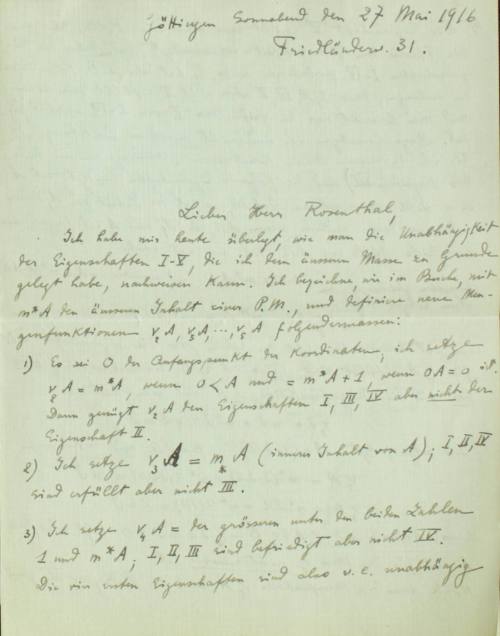 Göttingen Sonnabend den 27 Mai 1916
Friedländerw. 31.
Lieber Herr Rosenthal,
Ich habe mir heute überlegt, wie man die Unabhängigkeit
der Eigenschaften I-V, die ich dem äussern Masse zu Grunde
gelegt habe, nachweisen kann. Ich bezeichne, wie im Buche, mit
m*A den äusseren Inhalt einer P.M., und definire neue Men-
genfunktionen ν₂A, ν₃A, ..., ν₅A folgendermassen:
1) Es sei 0 der Anfangspunkt der Koordinaten; ich setze
ν₂A = m*A, wenn 0 < A und = m*A + 1, wenn 0A = 0 ist.
Dann genügt ν₂A den Eigenschaften I, III, IV aber nicht der
Eigenschaft II.
2) Ich setze ν₃A = m*A (innerer Inhalt von A); I, II, IV
sind erfüllt aber nicht III.
3) Ich setze ν₄A = der grösseren unter den beiden Zahlen
1 und m*A; I, II, III sind befriedigt aber nicht IV.
Die vier ersten Eigenschaften sind also v. e. unabhängig